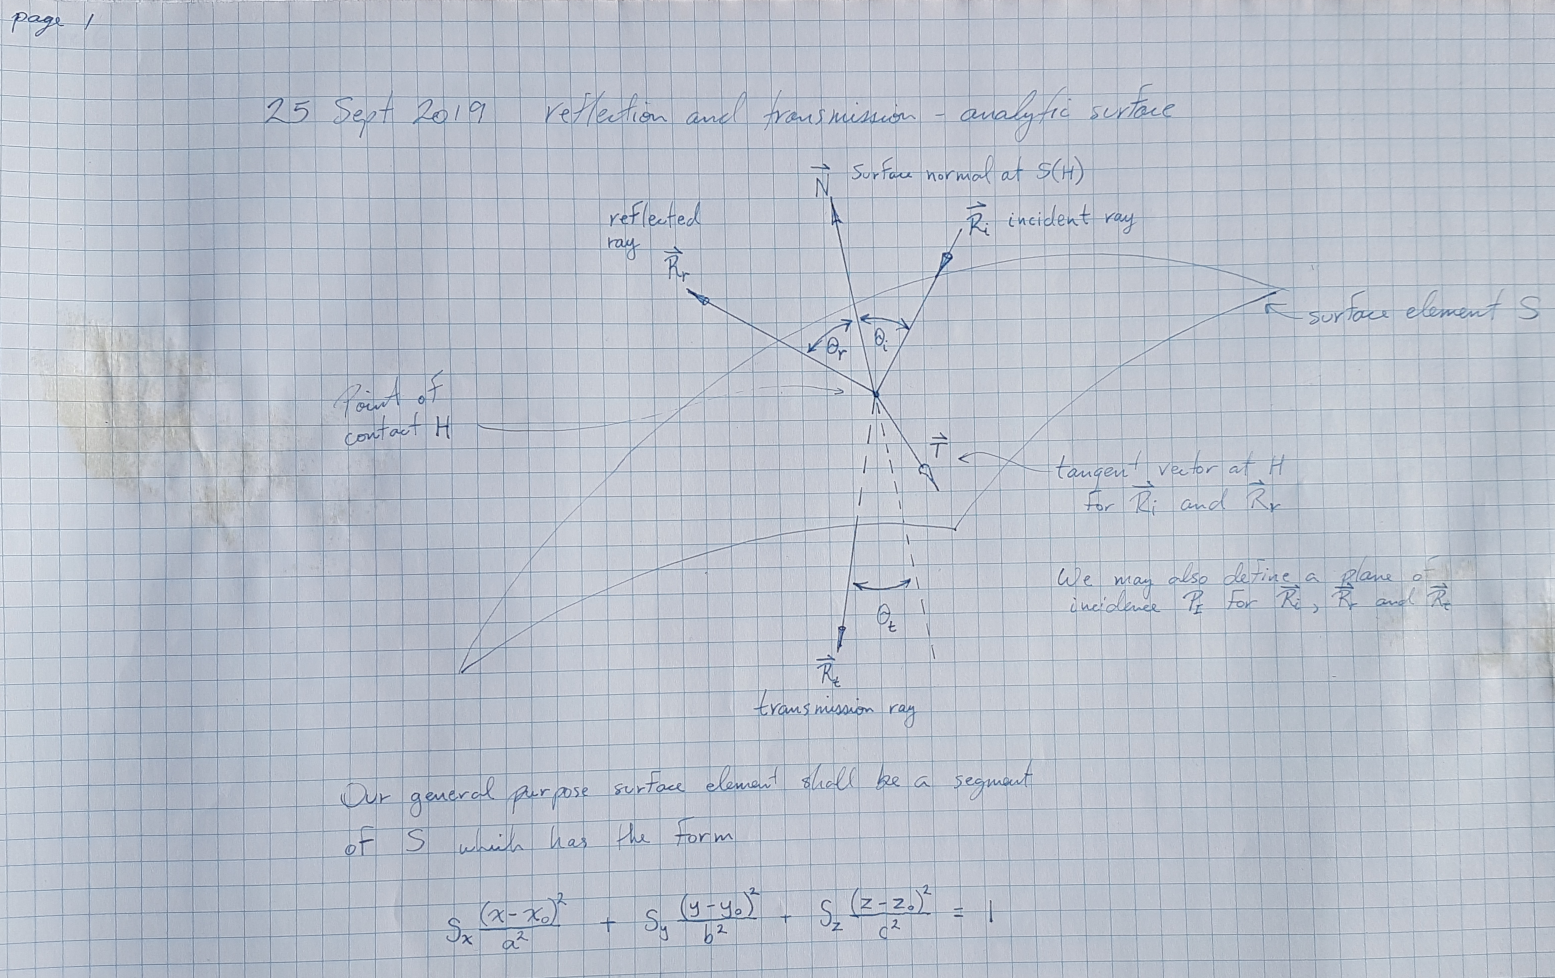 page 1
25 Sept 2019 reflection and transmission - analytic surface
N⃗ surface normal at S(H)
reflected
ray
R⃗ᵣ
R⃗ᵢ incident ray
surface element S
θᵣ θᵢ
Point of
contact H
T⃗
tangent vector at H
for R⃗ᵢ and R⃗ᵣ
We may also define a plane of
incidence P_I for R⃗ᵢ, R⃗ᵣ and R⃗ₜ
θₜ
R⃗ₜ
transmission ray
Our general purpose surface element shall be a segment
of S which has the form
Sₓ (x-x₀)²/a² + S_y (y-y₀)²/b² + S_z (z-z₀)²/c² = 1